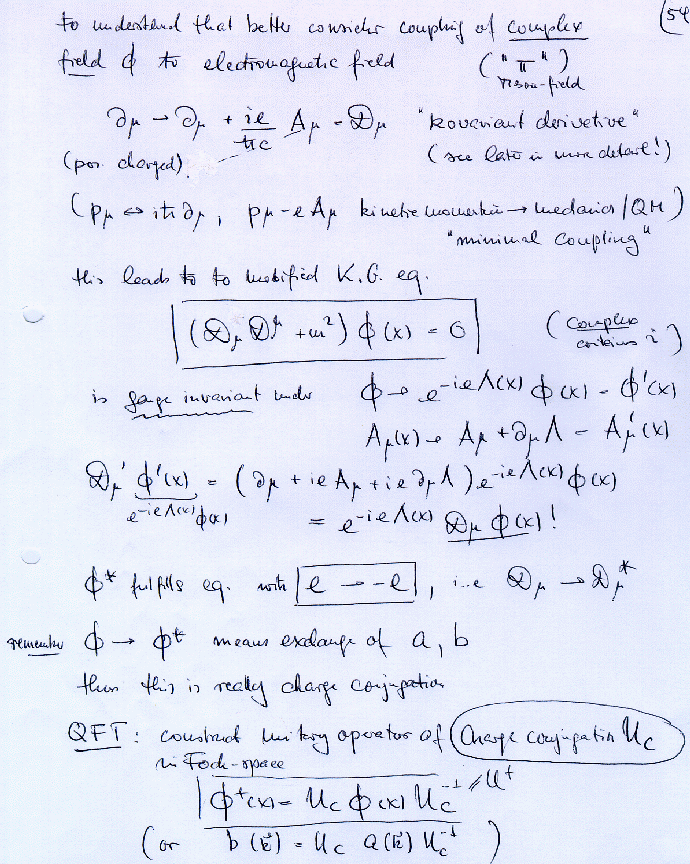 (54
to understand that better consider coupling of complex
field ϕ to electromagnetic field ("π"
meson-field)
∂μ → ∂μ + ie/ħc Aμ = 𝒟μ "kovariant derivative"
(pos. charged). (see later in more detail!)
(pμ ↔ iħ∂μ, pμ-eAμ kinetic momentum → mechanics/QM)
"minimal coupling"
this leads to to modified K.G. eq.
(𝒟μ 𝒟^μ + m²) ϕ(x) = 0 (complex
contains i)
is gauge invariant under ϕ → e^{-ieΛ(x)} ϕ(x) = ϕ'(x)
Aμ(x) → Aμ + ∂μΛ = Aμ'(x)
𝒟μ' ϕ'(x) = (∂μ + ieAμ + ie∂μΛ) e^{-ieΛ(x)} ϕ(x)
e^{-ieΛ(x)}ϕ(x) = e^{-ieΛ(x)} 𝒟μ ϕ(x)!
ϕ* fulfills eq. with e → -e, i.e 𝒟μ → 𝒟μ*
remember ϕ → ϕ* means exchange of a, b
thus this is really charge conjugation
QFT: construct unitary operator of Charge conjugation U_c
in Fock-space
ϕ⁺(x) = U_c ϕ(x) U_c^{-1} // U⁺
(or b(k⃗) = U_c a(k⃗) U_c^{-1})